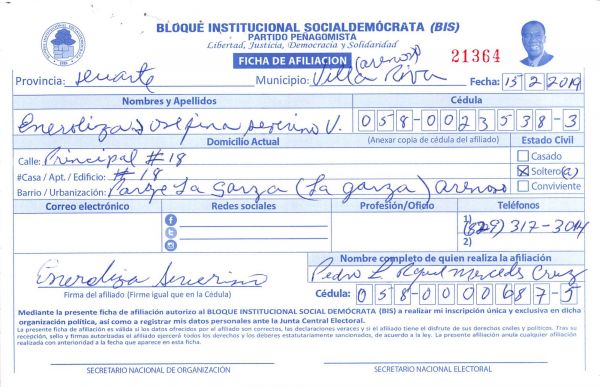 BLOQUE INSTITUCIONAL SOCIALDEMÓCRATA (BIS)
PARTIDO PEÑAGOMISTA
Libertad, Justicia, Democracia y Solidaridad
FICHA DE AFILIACION (arenoso) 21364
Provincia: Duarte Municipio: Villa Riva Fecha: 15/2/2019
Nombres y Apellidos Cédula
Eneroliza Josefina Severino V. 058-0023538-3
Domicilio Actual (Anexar copia de cédula del afiliado) Estado Civil
Calle: Principal #18 Casado
#Casa / Apt. / Edificio: #18 Soltero(a)
Barrio / Urbanización: La Garza (La garza) arenoso Conviviente
Correo electrónico Redes sociales Profesión/Oficio Teléfonos
1) (829) 317-3014
2)
Nombre completo de quien realiza la afiliación
Eneroliza Severino Pedro L. Mercedes Cruz
Firma del afiliado (Firme igual que en la Cédula) Cédula: 058-0000687-5
Mediante la presente ficha de afiliación autorizo al BLOQUE INSTITUCIONAL SOCIAL DEMÓCRATA (BIS) a realizar mi inscripción única y exclusiva en dicha
organización política, así como a registrar mis datos personales ante la Junta Central Electoral.
La presente ficha de afiliación es válida si los datos ofrecidos por el afiliado son correctos, las declaraciones veraces y si el afiliado tiene el disfrute de sus derechos civiles y políticos. Tras su
recepción, sello y firmas autorizadas el afiliado ejercerá todos los derechos y los deberes estatutariamente sancionados, de acuerdo a la ley. La presente afiliación anula cualquier afiliación
realizada con anterioridad a la fecha que aparece en esta ficha.
SECRETARIO NACIONAL DE ORGANIZACIÓN SECRETARIO NACIONAL ELECTORAL